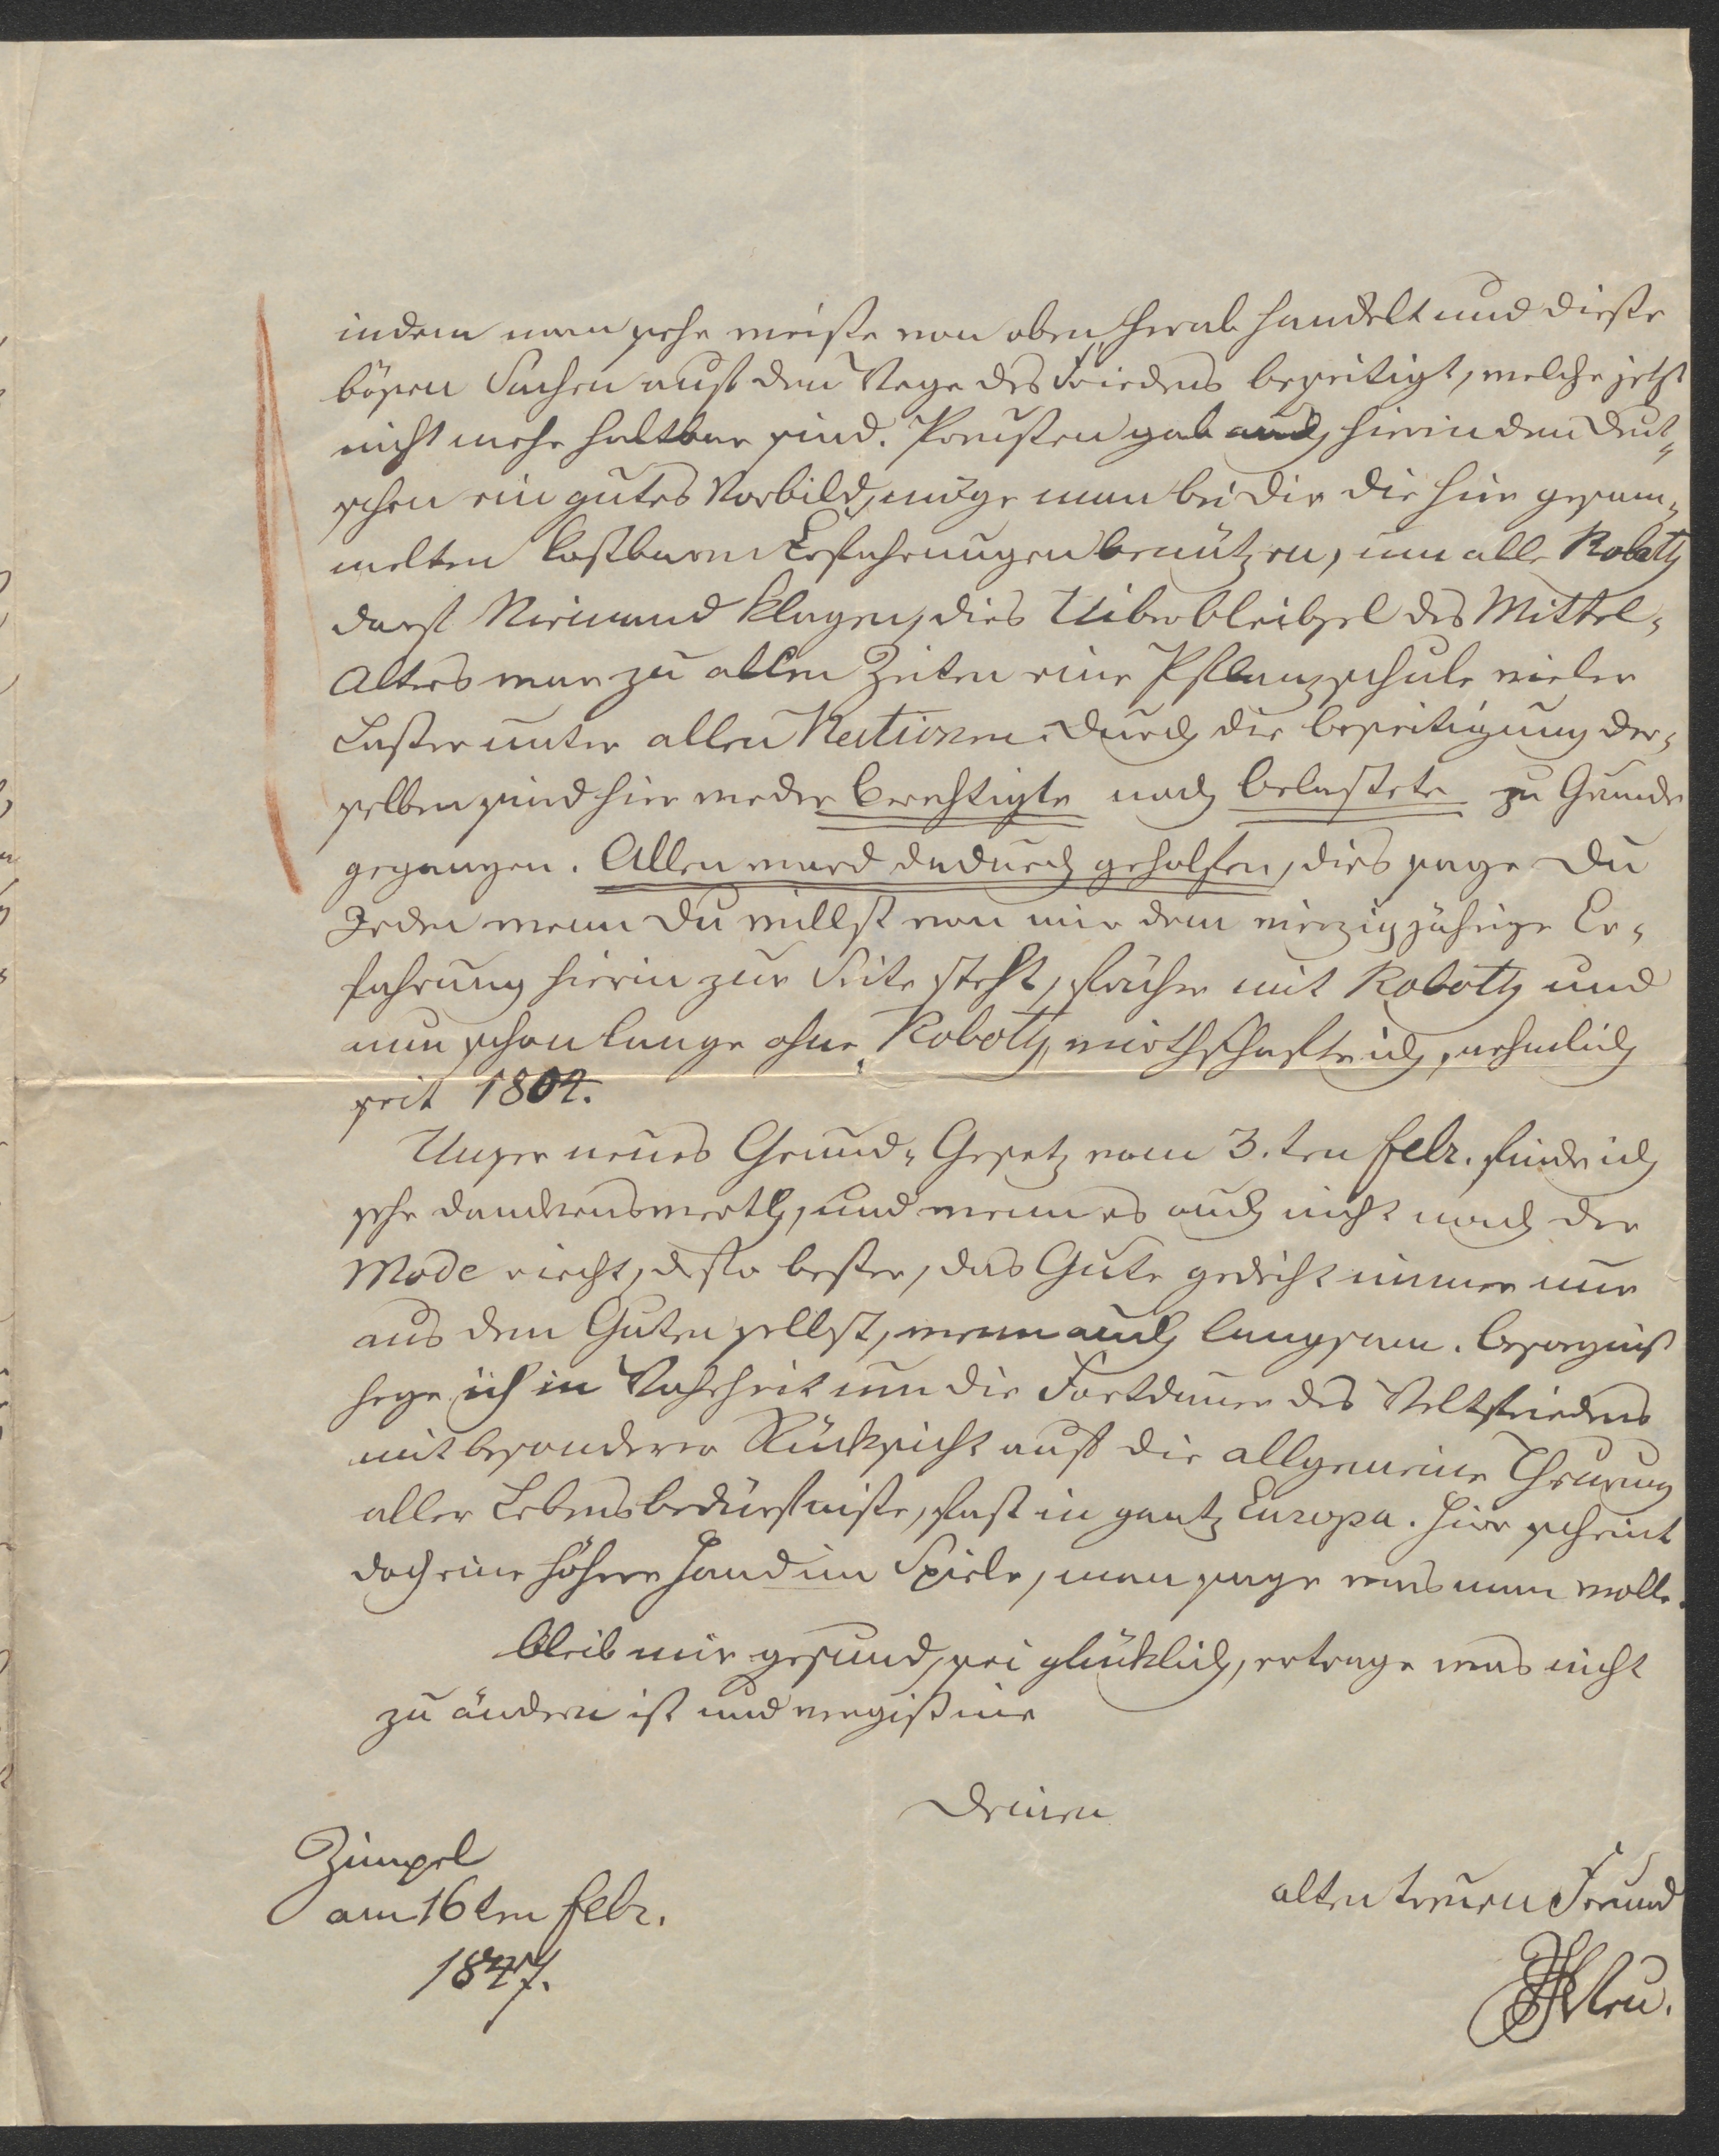 indem man sehr weise von oben herab handelt und diese
bösen Sachen auß dem Wege des Friedens beseitigt, welche jetzt
nicht mehr haltbar sind. Preusßen gab auch hierin den Deut-
schen ein gutes Vorbild, möge man bei Dir die hier gesam-
melten kostbaren Erfahrungen benützen, um alle Roboth
darf Niemand klagen, dies Uiberbleibsel des Mittel-
Alters war zu allen Zeiten eine Pflanzschule vieler
Laster unter allen Nationen. Durch die beseitigung der-
selben sind hier weder berechtigte noch belastete zu Grunde
gegangen. Allen ward dadurch geholfen, dies sage Du
Jeden wenn Du willst von mir dem vierzigjährige Er-
fahrung hierin zur Seite steht, früher mit Roboth und
nun schon lange ohne Roboth wirthschafte ich, nehmlich
seit 1802.
Unser neues Grund-Gesetz vom 3.ten febr. finde ich
sehr dankenswerth, und wenn es auch nicht nach der
Mode riecht, desto besser, das Gute gedeiht immer nur
aus dem Guten selbst, wenn auch langsam. Besorgniß
hege ich in Wahrheit um die Fortdauer des Weltfriedens
mit besonderer Rücksicht auf die allgemeine Theurung
aller Lebensbedürfniße, fast in gantz Europa. Hier scheint
doch eine höhere Hand im Spiele, man sage was man wolle.
bleib mir gesund, sei glücklich, ertrage was nicht
zu ändern ist und vergiß nie
Deinen
Zimpel
am 16ten febr.
1847.
alten treuen Freund